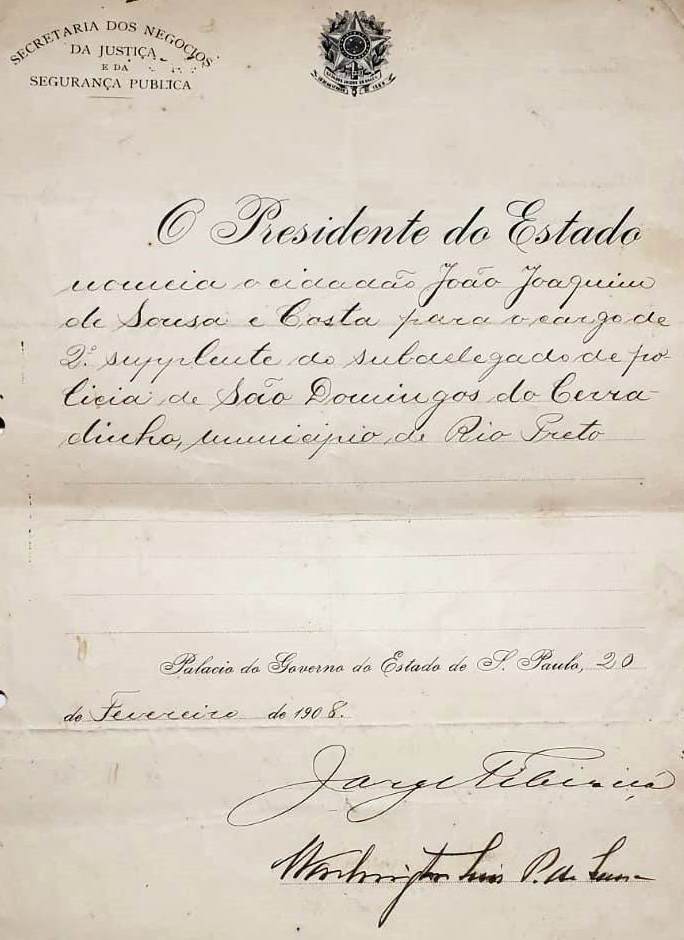 SECRETARIA DOS NEGOCIOS
DA JUSTIÇA
E DA
SEGURANÇA PUBLICA
O Presidente do Estado
nomeia o cidadão João Joaquim
de Sousa e Costa para o cargo de
2º supplente do subdelegado de po-
licia de São Domingos do Cerra-
dinho, municipio de Rio Preto
Palacio do Governo do Estado de S. Paulo, 20
de Fevereiro de 1908.
Jorge Tibiriçá
Washington Luis P. de Sousa